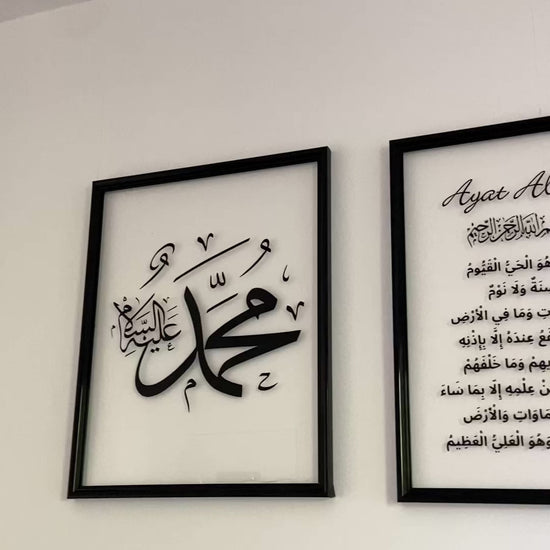 محمد
عليه السلام
Ayat Al
الله الرحمن الرحيم
هُوَ الْحَيُّ الْقَيُّومُ
سِنَةٌ وَلَا نَوْمٌ
وَمَا فِي الْأَرْضِ
عِنْدَهُ إِلَّا بِإِذْنِهِ
وَمَا خَلْفَهُمْ
عِلْمِهِ إِلَّا بِمَا شَاءَ
وَالْأَرْضَ
وَهُوَ الْعَلِيُّ الْعَظِيمُ